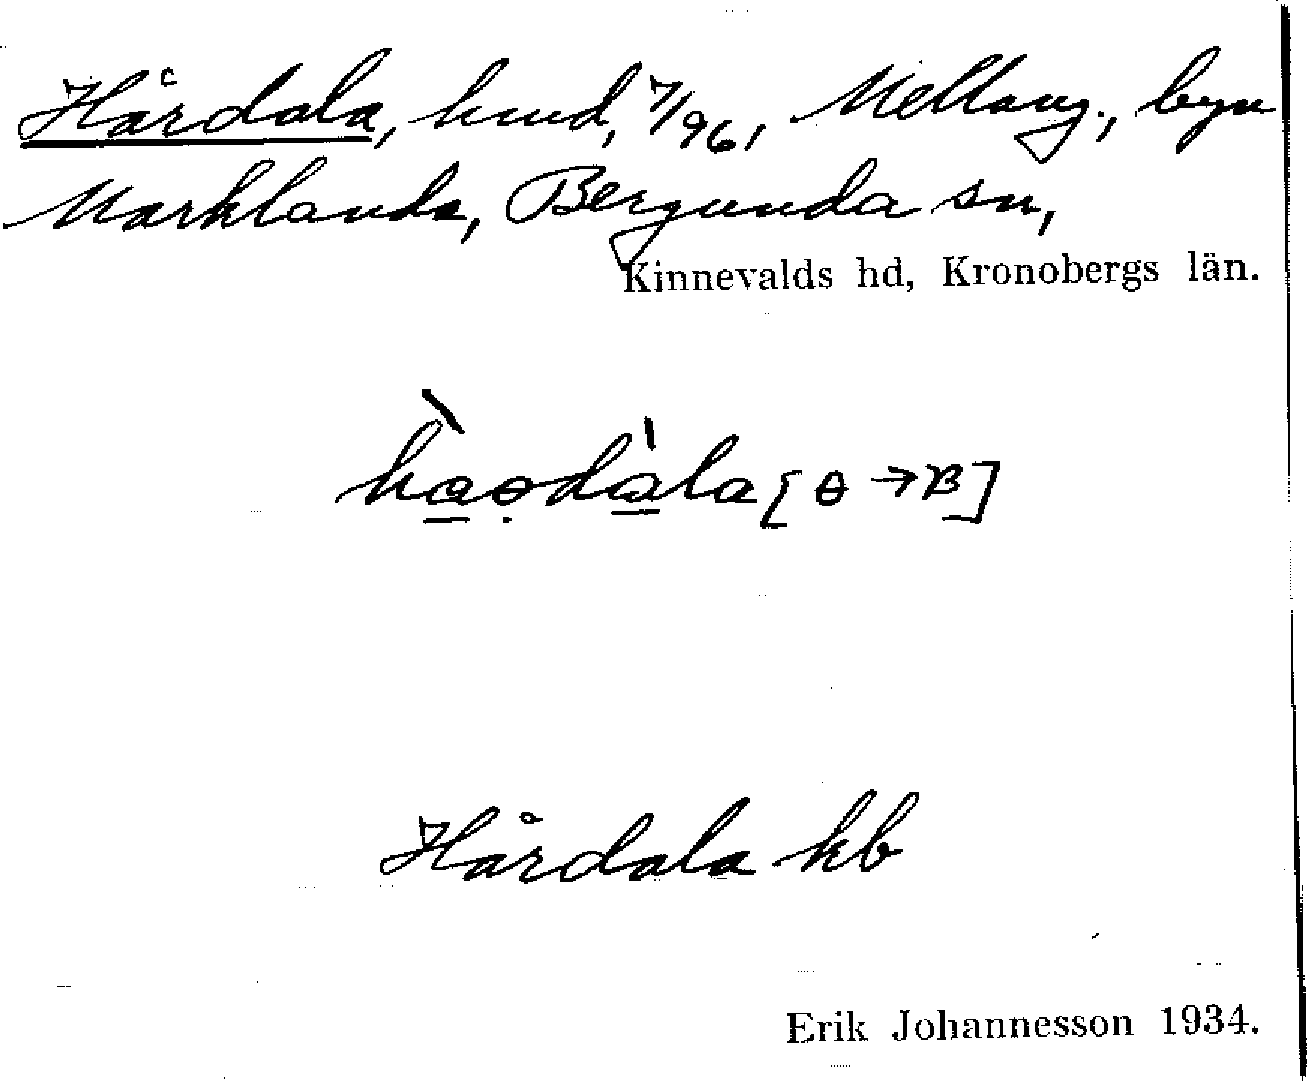 Hårdala, hmd, 7/96, Mellang., byn
Marklanda, Bergunda sn,
Kinnevalds hd, Kronobergs län.
Hårdala kb
Erik Johannesson 1934.